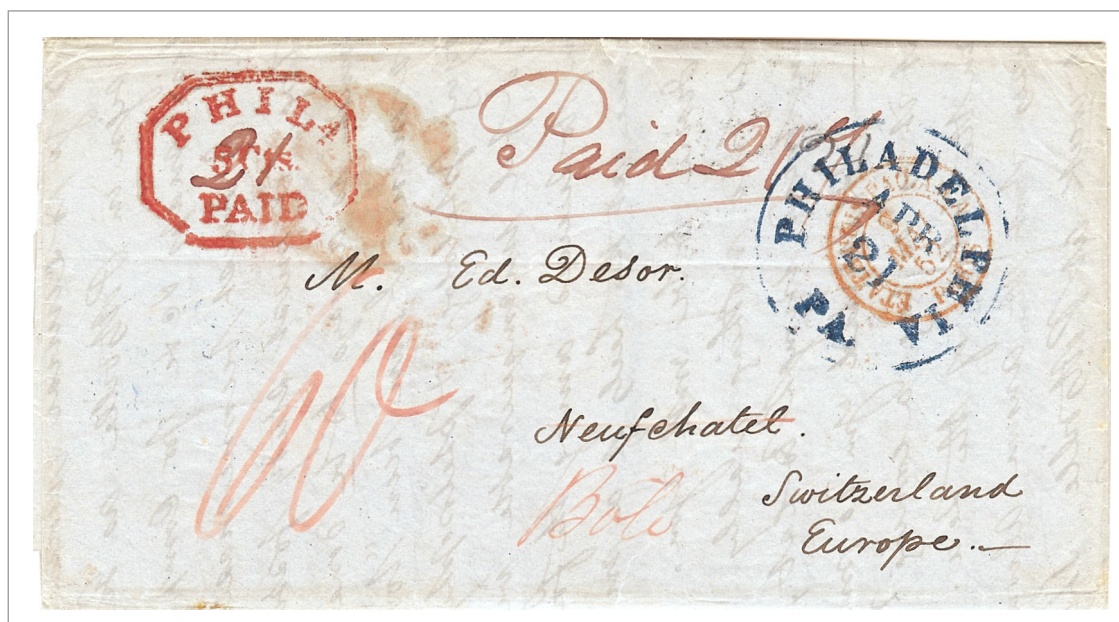 PHILA
21
PAID
Paid 21
PHILADELPHIA
APR
21
PA.
M. Ed. Desor.
60
Neufchatel.
Switzerland
Europe.